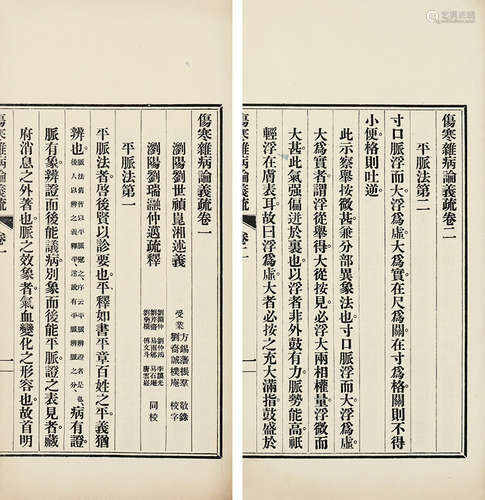 傷寒雜病論義疏卷一
瀏陽劉世禎崑湘述義
瀏陽劉瑞瀜仲邁疏釋
受業
方錫藩振羣 敬錄
劉裔誠樸庵 校字
同校
平脈法第一
平脈法者啓後賢以診要也平釋如書平章百姓之平義猶
辨也
病有證
脈有象證顯而後能議病別象而後能平脈證之表見者藏
府消息之外著也脈之效象者氣血變化之形容也故首明
傷寒雜病論義疏卷二
平脈法第二
寸口脈浮而大浮爲虛大爲實在尺爲關在寸爲格關則不得
小便格則吐逆
此示察舉按微甚兼分部異象法也寸口脈浮而大浮爲虛
大爲實者謂浮從舉得大從按見必浮大兩相權量浮微而
大甚此氣强偏迸於裏也以浮者非外鼓有力脈勢能高祇
輕浮在膚表耳故曰浮爲虛大者必按之充大滿指鼓盛於